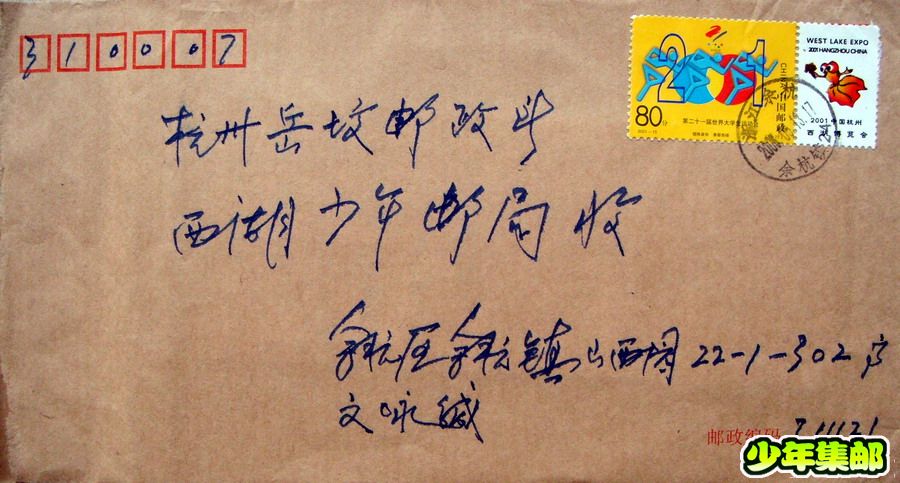 310007
WEST LAKE EXPO
2001 HANGZHOU CHINA
80分
中国邮政
CHINA
第二十一届世界大学生运动会
2001-15
2001中国杭州
西湖博览会
杭州岳坟邮政
西湖少年邮局收
镇山西园22-1-302
文咏
邮政编码 311121
少年集邮